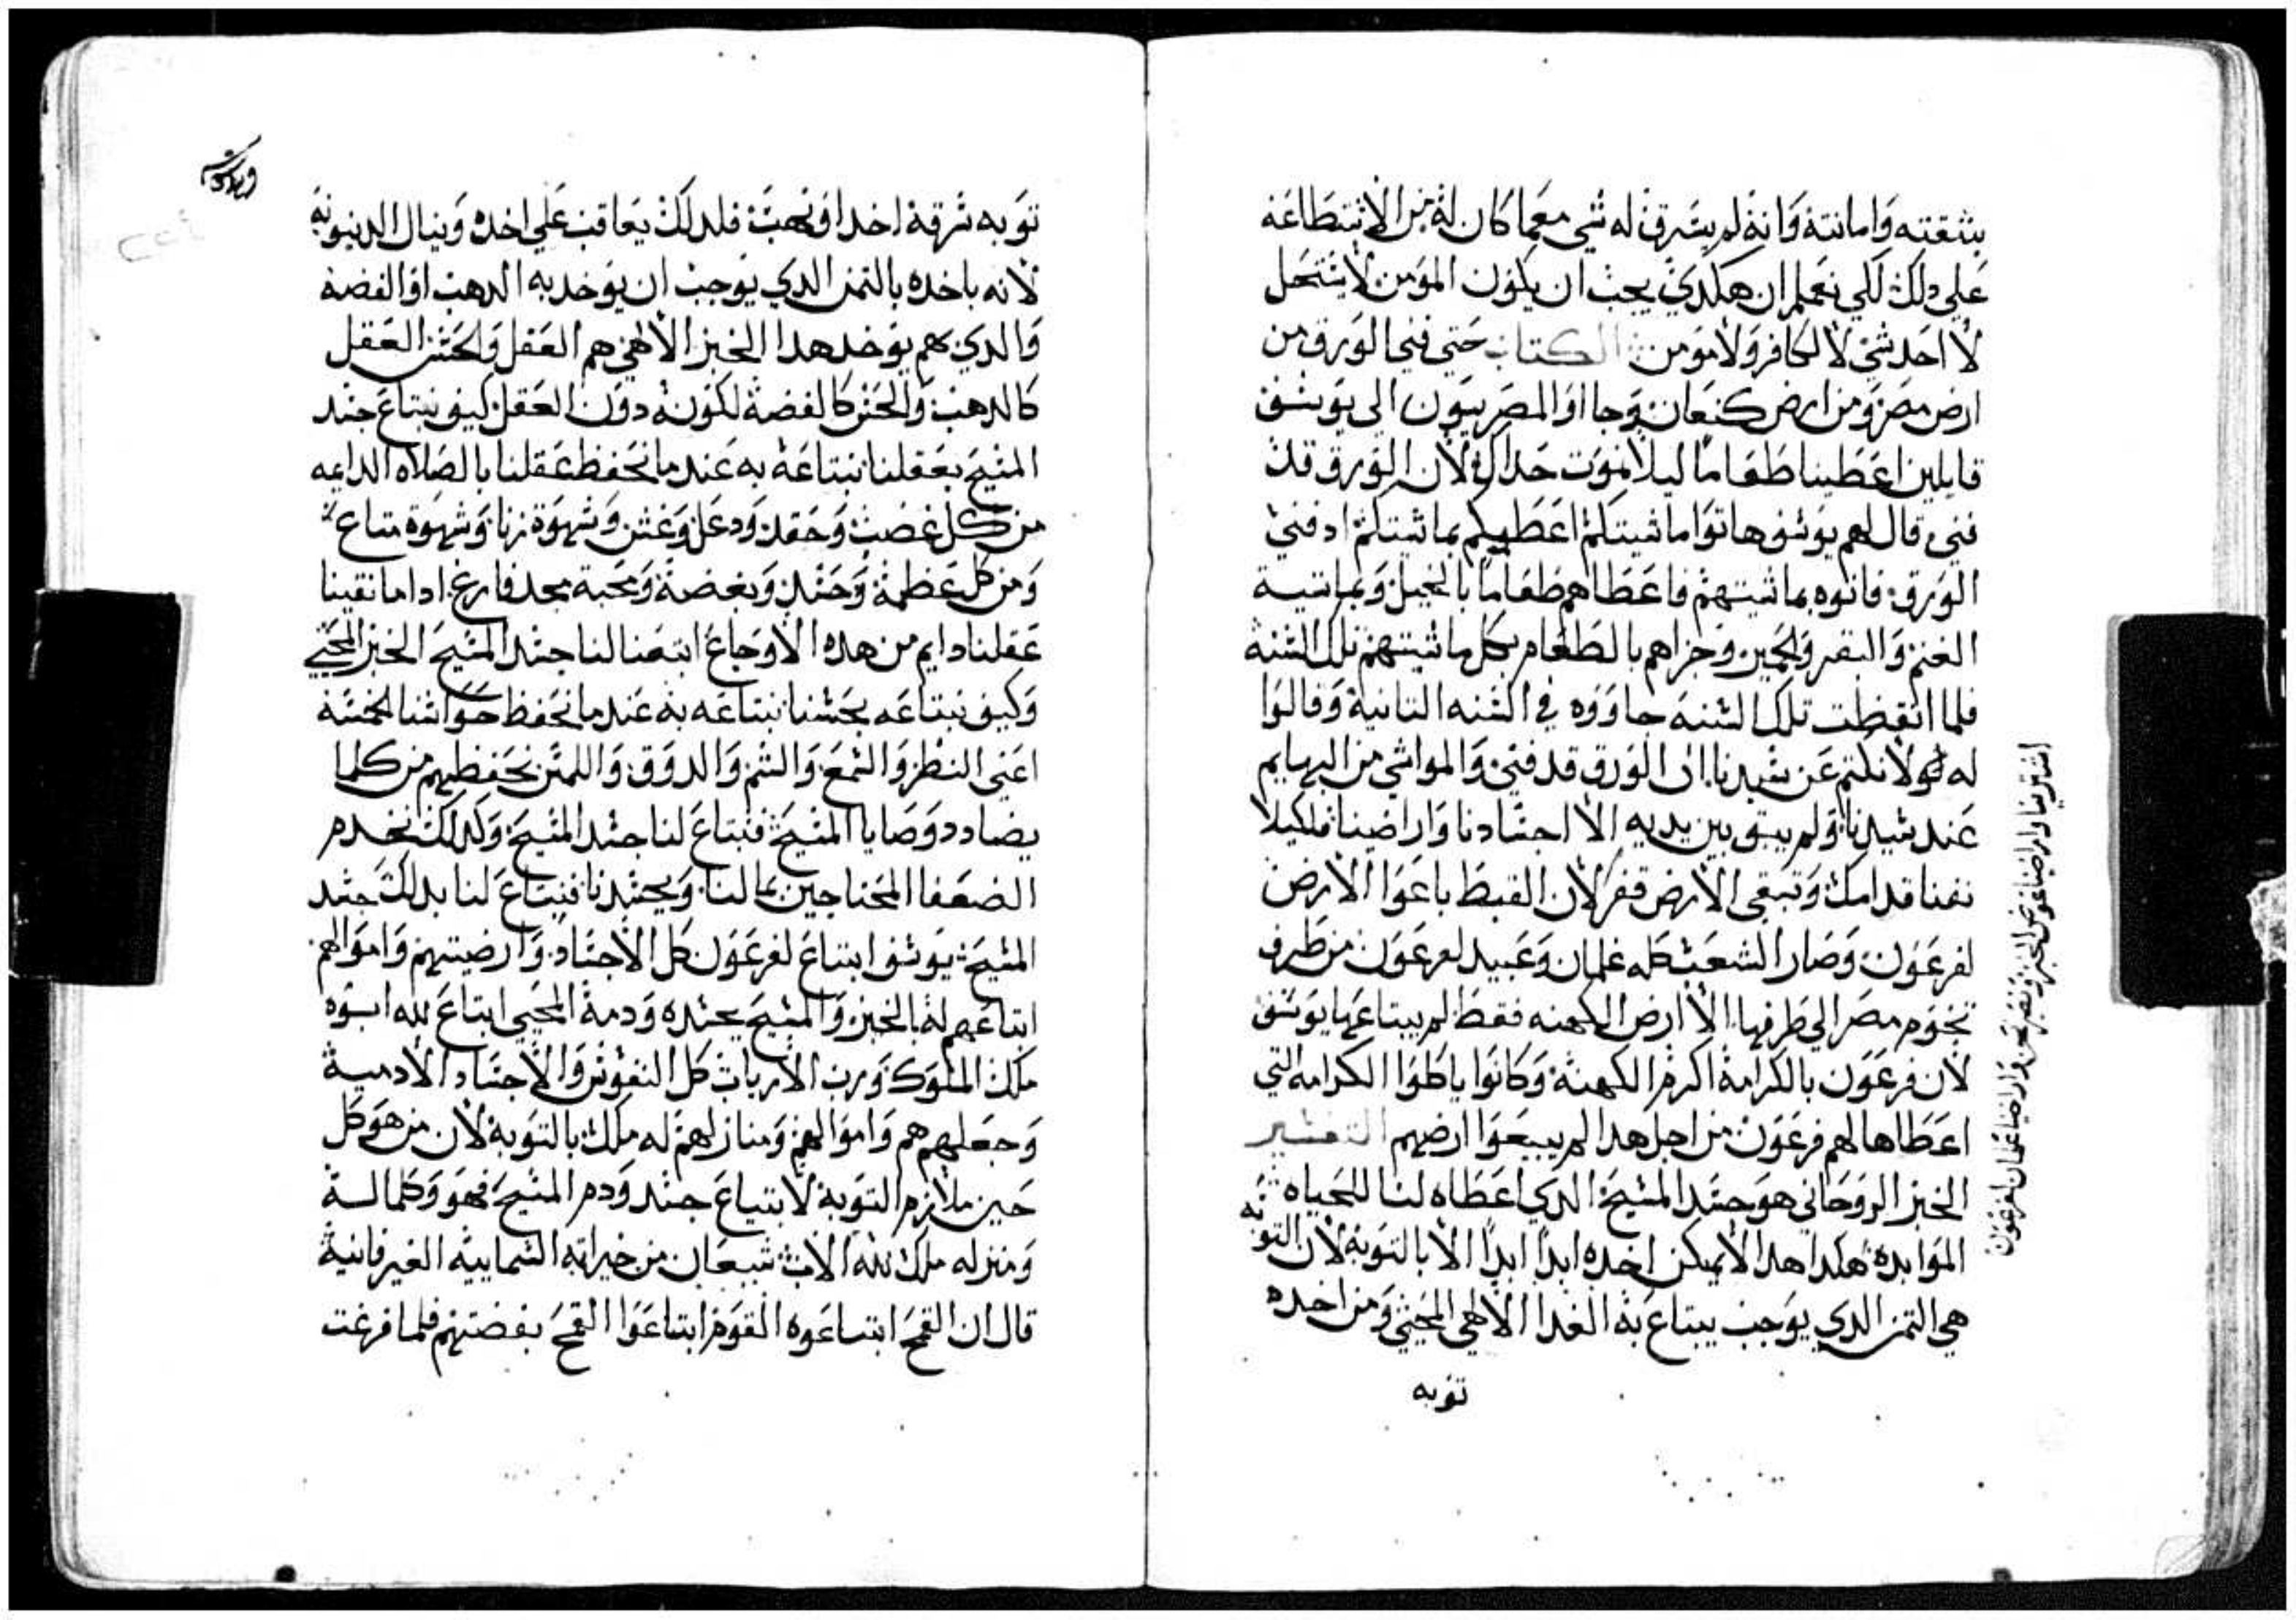 بثقته وامانته وانه لم يسرق له شي معما كان له من الاستطاعه
علي دلك لكي نعلم ان هكدي يجب ان يكون المومن لا يستحل
لا احد شي لا لكافر ولا مومن الكتاب حتي فني الورق من
ارض مصر ومن ارض كنعان وجااوا المصريون الي يوسف
قايلين اعطينا طعاما ليلا نموت حداك لان الورق قد
فني قال لهم يوسف هاتوا ماشيتكم اعطيكم بماشيتكم اد فني
الورق فاتوه بماشيتهم فاعطاهم طعاما بالخيل وبماشية
الغنم والبقر والحمير وجزاهم بالطعام بكل ماشيتهم تلك السنه
فلما انقظت تلك السنه جاووه في السنه التانية وقالوا
له لا نكتم عن سيدنا ان الورق قد فني والمواشي من البهايم
عند سيدنا ولم يبق بين يديه الا اجسادنا واراضينا فلكيلا
نفنا قدامك وتبقي الارض قفر لان القبط باعوا الارض
لفرعون وصار الشعب كله غلمان وعبيد لفرعون من طرف
تخوم مصر الي طرفها الا ارض الكهنه فقط لم يبتاعها يوسف
لان فرعون بالكرامة اكرم الكهنة وكانوا ياكلوا الكرامه التي
اعطاها لهم فرعون من اجل هدا لم يبيعوا ارضهم التفسير
الخبز الروحاني هو جسد المسيح الدي اعطاه لنا للحياه
الموابده هكدا هدا لا يمكن اخده ابدا ابدا الا بالتوبة لان التوبه
هي التمن الدي يوجب يبتاع به الغدا الالاهي المحيي ومن اخده
توبه
اشترينا واراضينا عوض الخبز ونصير نحن واراضينا غلمان لفرعون
توبه سرقة اخد او نهب فلدلك يعاقب علي اخده وينال الدينونه
لانه ياخده بالتمن الدي يوجب ان يوخد به الدهب او الفضة
والدي بهم يوخد هدا الخبز الالاهي هم العقل والحس العقل
كالدهب والحس كالفضة لكونه دون العقل كيف نبتاع جسد
المسيح بعقلنا نبتاعه به عند ما نحفظ عقلنا بالصلاه الدايمه
من كل غضب وحقد ودغل وغش وشهوة زنا وشهوة متاع
ومن كل عظمة وحسد وبغضة ومحبة مجد فارغ ادا ما نقينا
عقلنا دايم من هده الاوجاع ابتعنا لنا جسد المسيح الخبز المحيي
وكيف نبتاعه بحسنا نبتاعه به عند ما نحفظ حواسنا الخمسة
اعني النظر والسمع والشم والدوق واللمس نحفظهم من كلما
يضادد وصايا المسيح فنبتاع لنا جسد المسيح وكدلك نخدم
الضعفا المحتاجين بمالنا وبجسدنا فنبتاع لنا بدلك جسد
المسيح يوسف ابتاع لفرعون كل الاجساد وارضيتهم واموالهم
ابتاعهم له بالخبز والمسيح بجسده ودمة المحيي ابتاع لله ابوه
ملك الملوك ورب الارباب كل النفوس والاجساد الادمية
وجعلهم هم واموالهم ومنازلهم له ملك بالتوبة لان من هو كل
حين ملازم التوبة لابتياع جسد ودم المسيح فهو وكلما لة
ومنزله ملك لله الاب شبعان من خيراته السماييه الغير فانية
قال ان القمح ابتاعوه القوم ابتاعوا القمح بفضتهم فلما فرغت